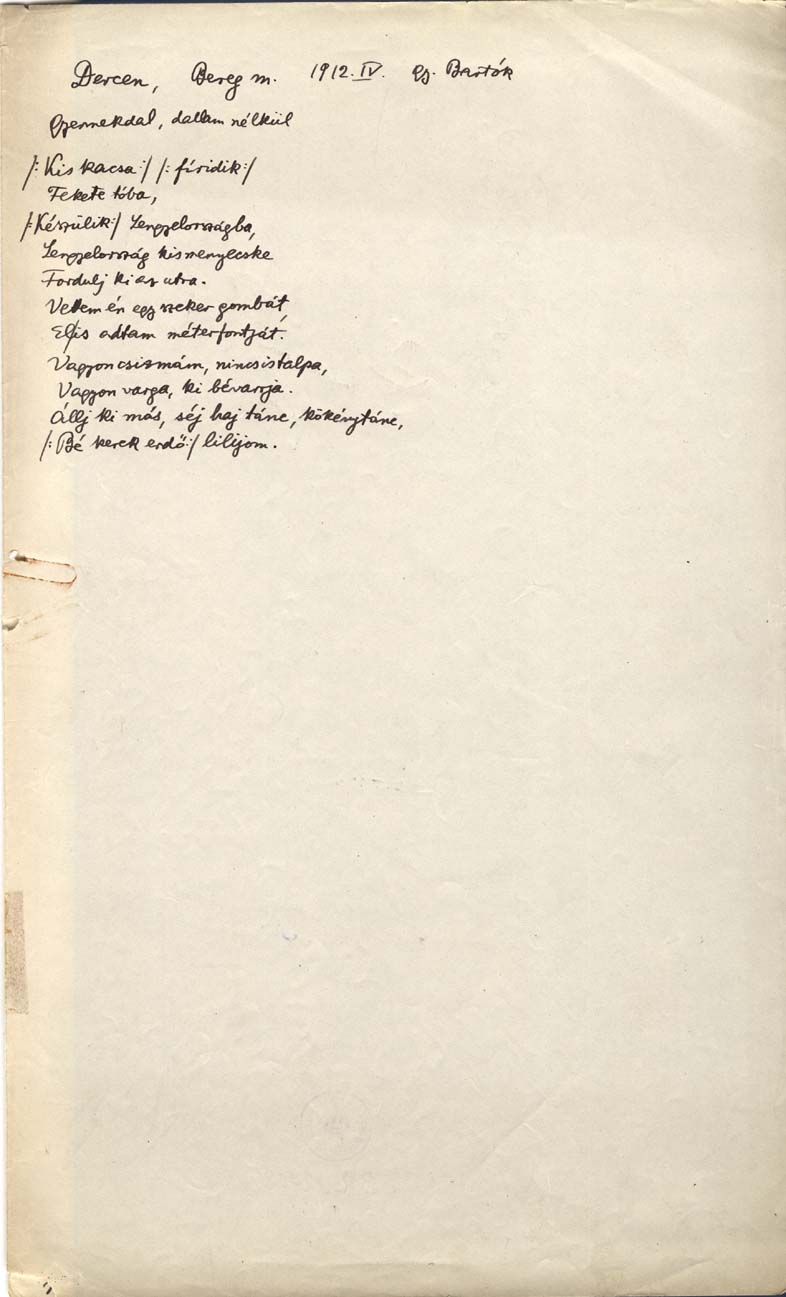 Dercen, Bereg m. 1912. IV. gy. Bartók
Gyermekdal, dallam nélkül
/: Kis kacsa :/ /: firidik :/
Fekete tóba,
/: Készülik :/ Lengyelországba,
Lengyelország kismenyecske
Fordulj ki az utra.
Vettem én egy szeker gombát,
El is adtam méterfontját.
Vagyon csizmám, nincsis talpa,
Vagyon varga, ki bévarrja.
Állj ki más, séj haj tánc, kökénytánc,
/: Bé kerek erdő :/ lilijom.